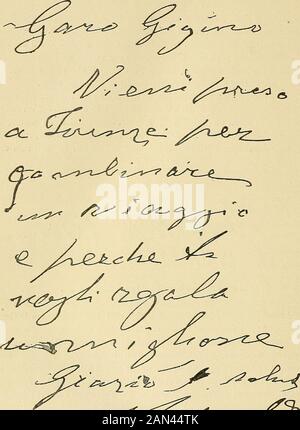 Garo Gigino
Vieni preso
a Firenze per
gambinare
un viaggio
e perche ti
vogli regala
un miglione
Grazio
alamy
Image ID: 2AN44TK
www.alamy.com